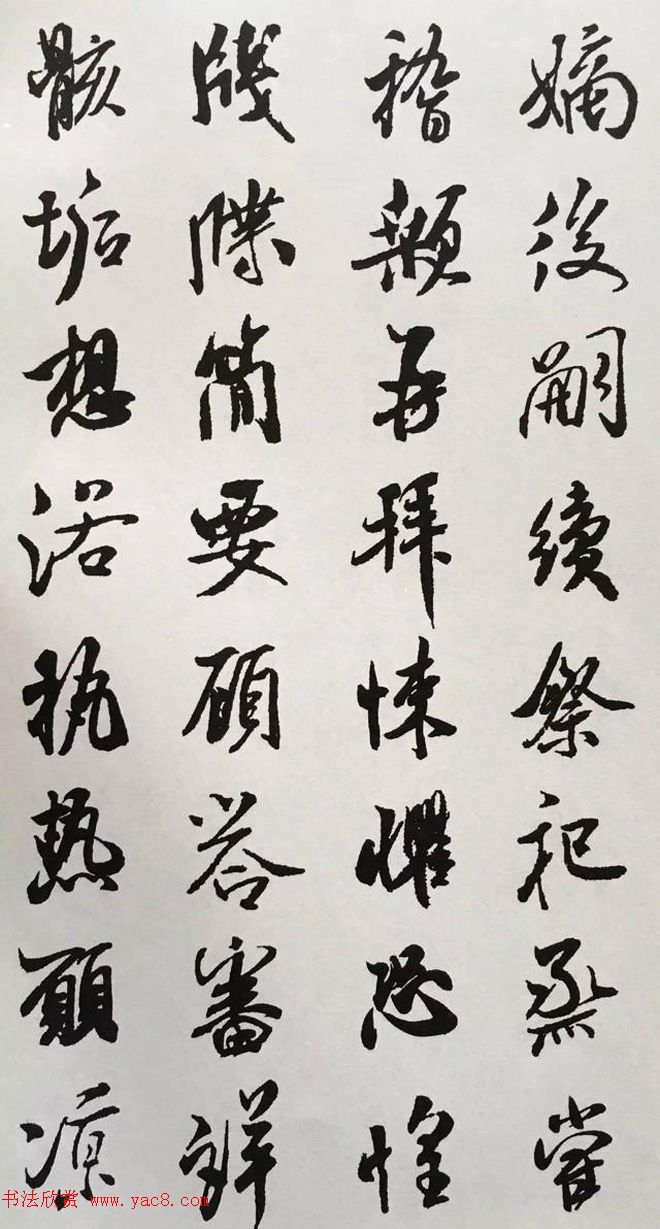 嫡後嗣續祭祀蒸嘗
稽顙再拜悚懼恐惶
牋牒簡要顧答審詳
骸垢想浴執熱願涼
书法欣赏 www.yac8.com